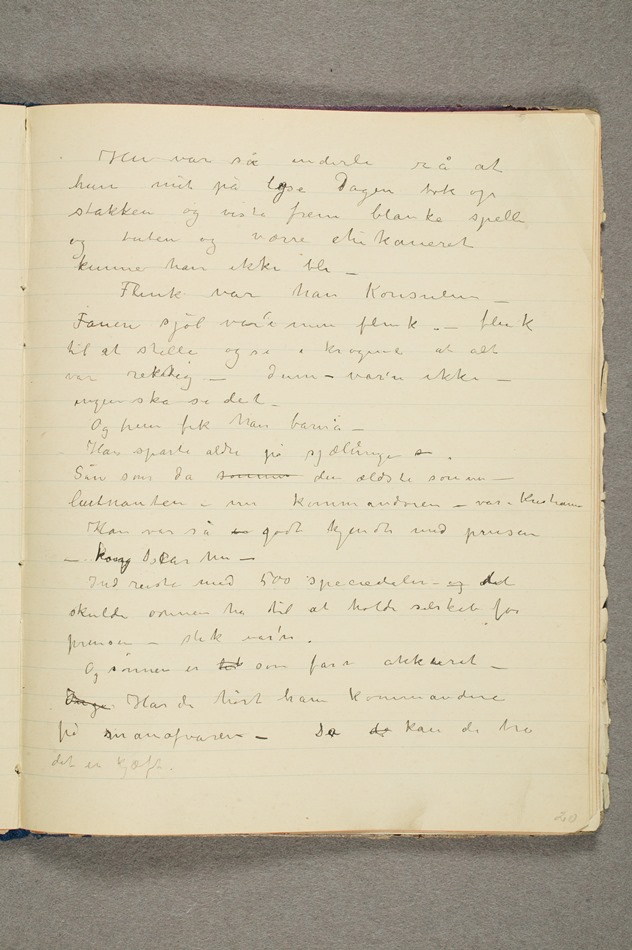 Hun var så underle rå at
hun mit på lyse Dagen tok op
stakken og viste frem blanke spell
og tuten og værre chikaneret
kunne han ikke bli —
Flink var han Konsulen —
Fanen sjøl var'e nun flink. — flink
til at stelle og se i krogene at alt
var rektig — Dum — var'n ikke —
ingen ska si det —
Og frem fik han barna —
Han sparte aldri på skjællinger
Sån som da sønnen den ældste sønnen —
løitnanten — nu kommandøren — var i Kristiania
Han var så godt kjendt med prinsen
— kong Oscar nu —
Ind reiste med 500 speciedaler — og det
skulde sønnen ha til at holde selskab for
prinsen — slik var'n.
Og sønnen er som far'n akkurat —
Har De hørt ham kommandere
på manøvren — Da kan De tro
det er kjæft.
20